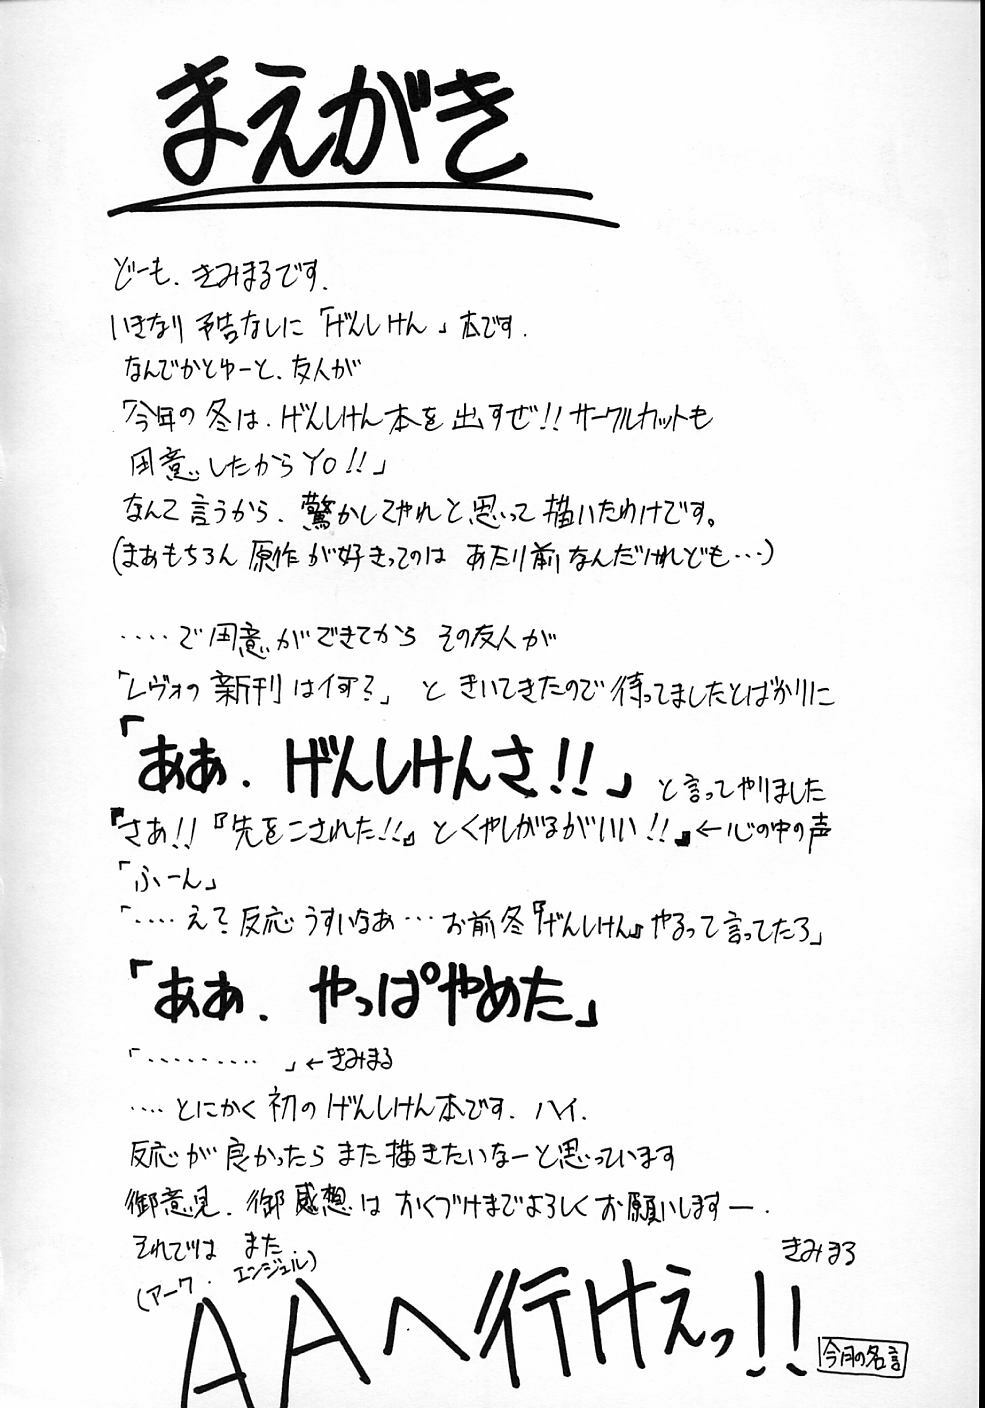 まえがき
どーも、きみまるです.
いきなり予告なしに「げんしけん」本です.
なんでかとゆーと、友人が
「今年の冬は、げんしけん本を出すぜ!!サークルカットも
用意したからYO!!」
なんて言うから、驚かしてやれと思って描いたわけです。
(まあもちろん原作が好きってのはあたり前なんだけれども…)
‥‥で用意ができてからその友人が
「レヴォの新刊は何?」ときいてきたので待ってましたとばかりに
「ああ、げんしけんさ!!」と言ってやりました
『さあ!!『先をこされた!!』とくやしがるがいい!!』←心の中の声
「ふーん」
「‥‥え?反応うすいなあ…お前冬『げんしけん』やるって言ってたろ」
「ああ、やっぱやめた」
「‥‥‥‥‥」←きみまる
‥‥とにかく初のげんしけん本です.ハイ.
反応が良かったらまた描きたいなーと思っています
御意見、御感想はおくづけまでよろしくお願いしますー.
それではまた
きみまる
(アーク・エンジェル)
AAへ行けえっ!!
今月の名言